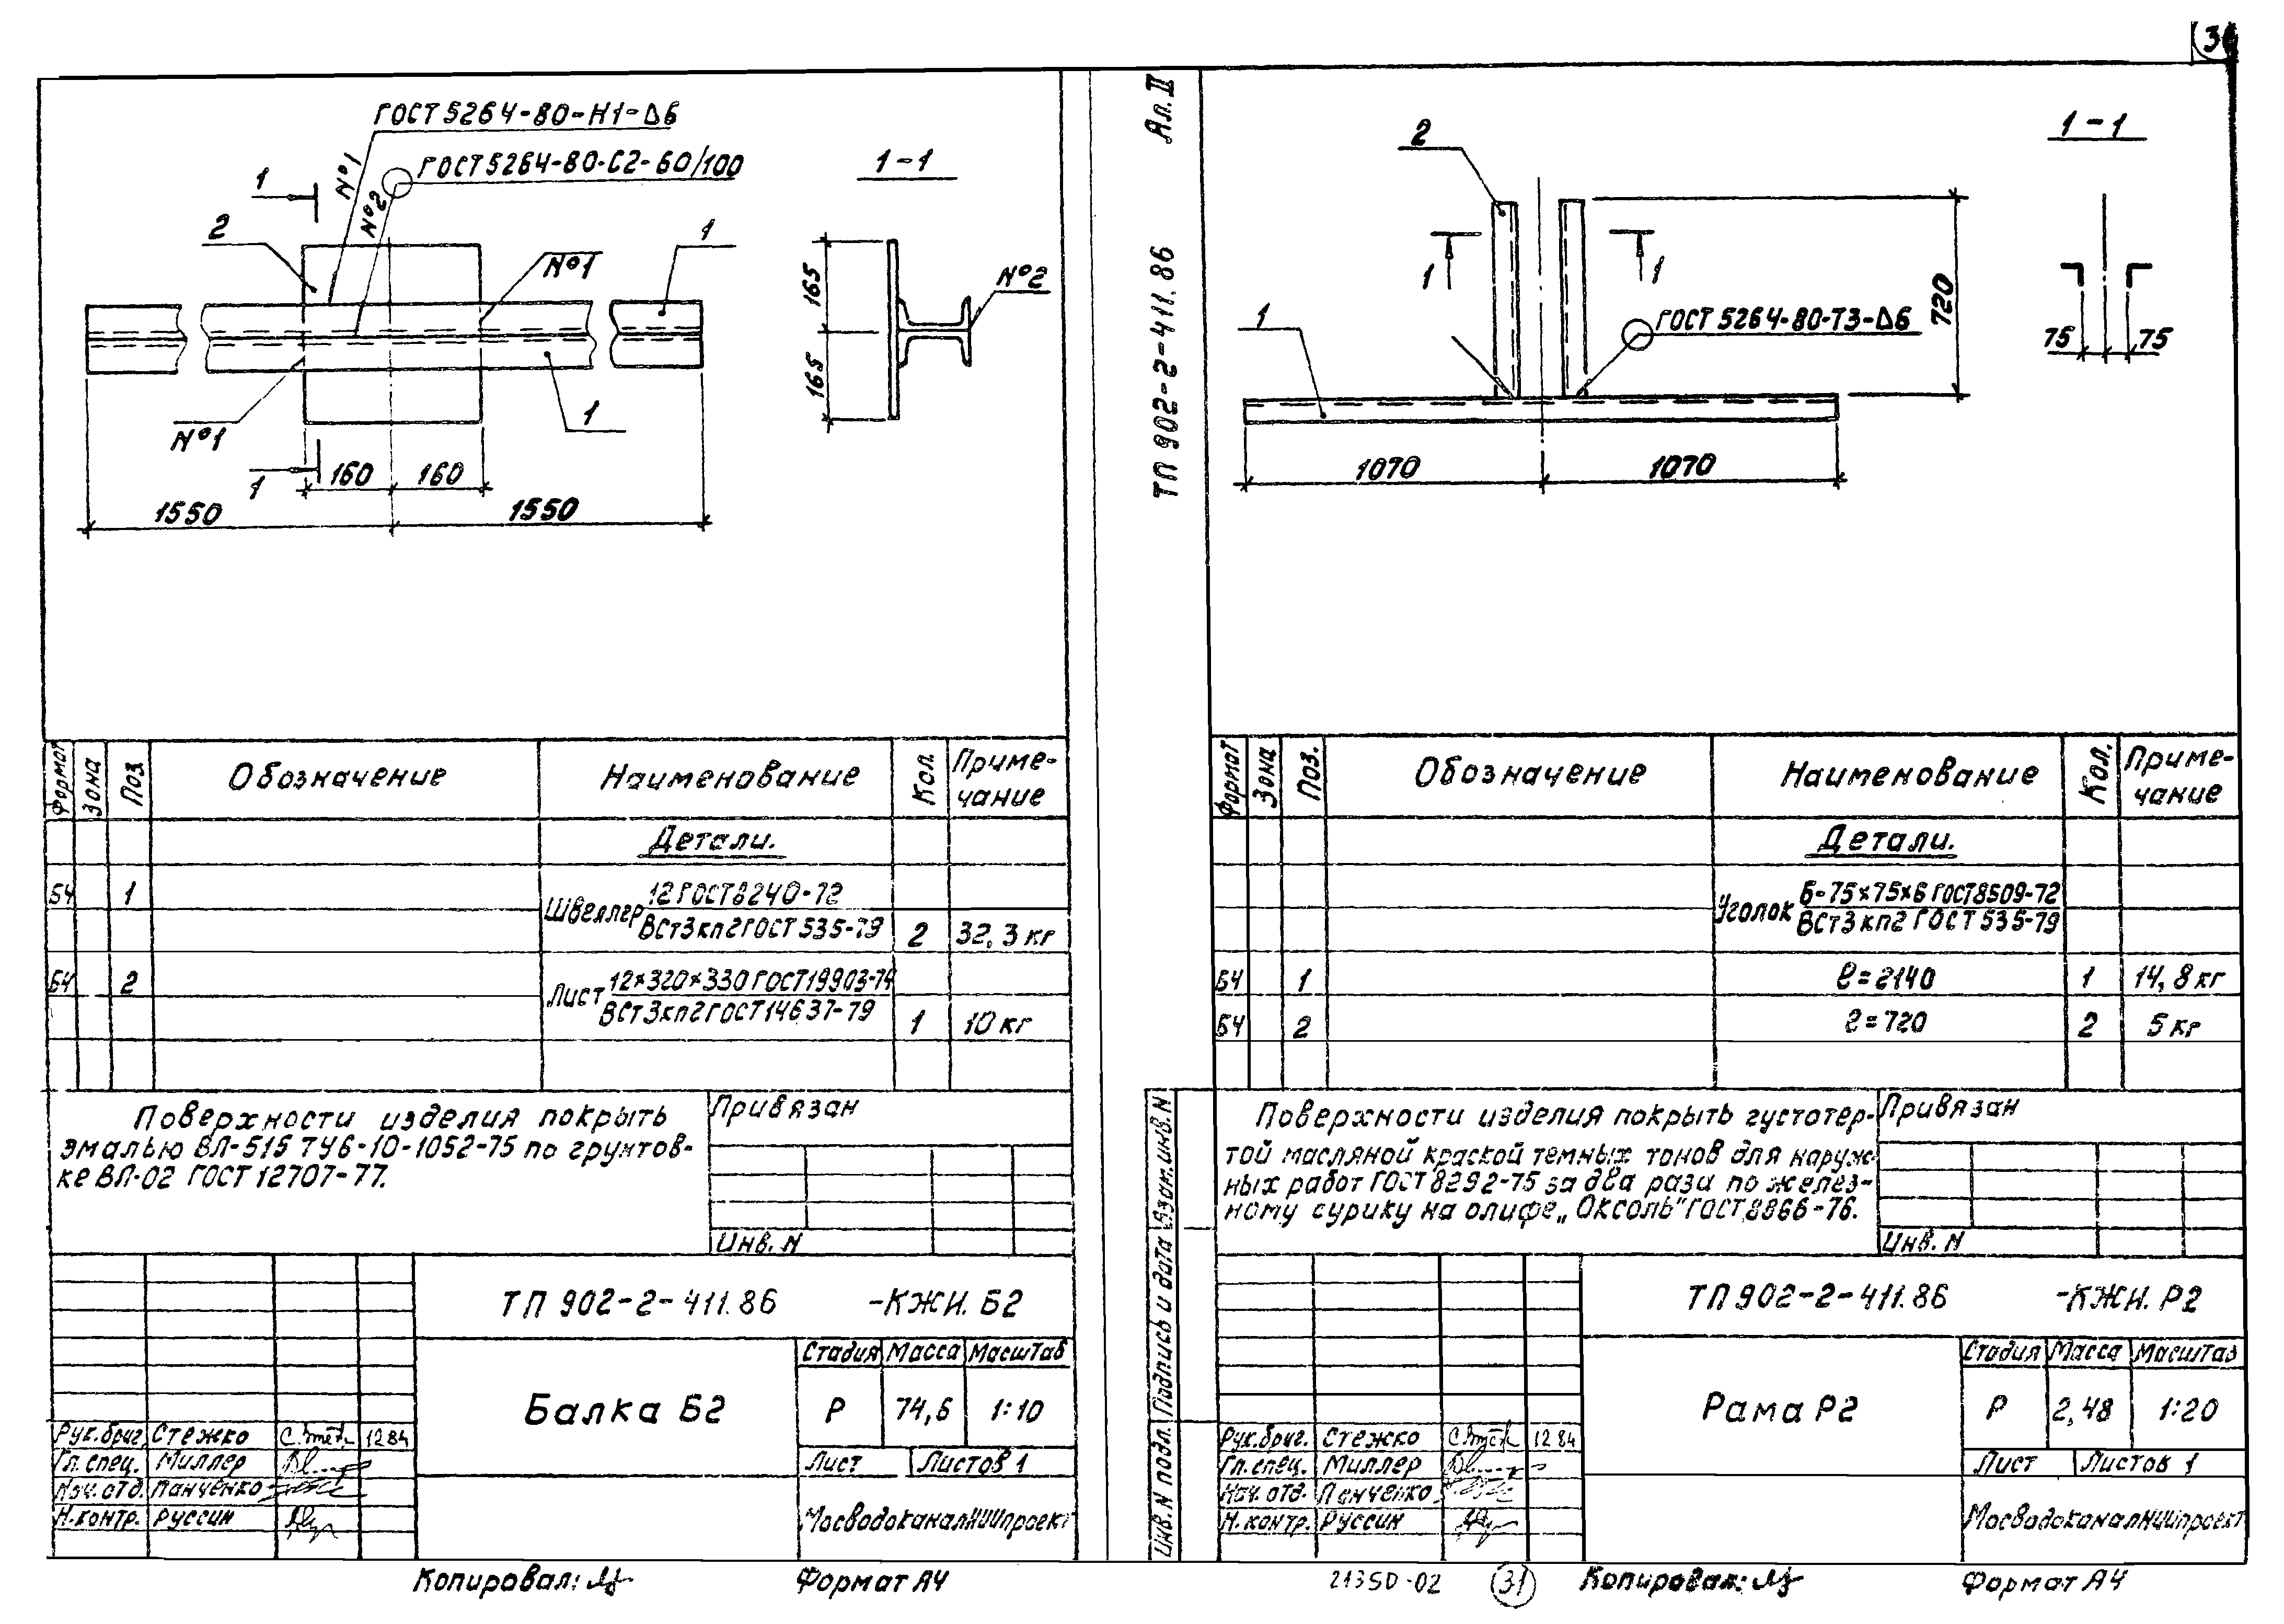 3
ГОСТ 5264-80-Н1-Δ6
ГОСТ 5264-80-С2-60/100
№1
№2
1
1
2
1
1
№1
№1
160
160
1550
1550
1-1
165
165
№2
Формат
Зона
Поз.
Обозначение
Наименование
Кол.
Приме-
чание
Детали.
БЧ 1 Швеллер 12 ГОСТ 8240-72
ВСт3кп2 ГОСТ 535-79 2 32,3 кг
БЧ 2 Лист 12×320×330 ГОСТ 19903-74
ВСт3кп2 ГОСТ 14637-79 1 10 кг
Поверхности изделия покрыть
эмалью ВЛ-515 ТУ6-10-1052-75 по грунтов-
ке ВЛ-02 ГОСТ 12707-77.
Привязан
Инв. N
ТП 902-2-411.86 -КЖИ. Б2
Балка Б2
Стадия Масса Масштаб
Р 74,6 1:10
Лист Листов 1
МосводоканалНИИпроект
Рук.бриг. Стежко 12 84
Гл. спец. Миллер
Нач. отд. Панченко
Н.контр. Руссин
Копировал:
Формат А4
Ал. II
ТП 902-2-411.86
2
1
1
1
ГОСТ 5264-80-Т3-Δ6
720
1070
1070
1-1
75
75
Формат
Зона
Поз.
Обозначение
Наименование
Кол.
Приме-
чание
Детали.
Уголок Б-75×75×6 ГОСТ 8509-72
ВСт3кп2 ГОСТ 535-79
БЧ 1 ℓ=2140 1 14,8 кг
БЧ 2 ℓ=720 2 5 кг
Поверхности изделия покрыть густотер-
той масляной краской темных тонов для наруж
ных работ ГОСТ 8292-75 за два раза по желез-
ному сурику на олифе „Оксоль" ГОСТ 8866-76.
Привязан
Инв. N
Взам.инв.N
Подпись и дата
Инв.N подл.
ТП 902-2-411.86 -КЖИ. Р2
Рама Р2
Стадия Масса Масштаб
Р 2,48 1:20
Лист Листов 1
МосводоканалНИИпроект
Рук.бриг. Стежко 12 84
Гл. спец. Миллер
Нач. отд. Панченко
Н. контр. Руссин
21350-02
31
Копировал:
Формат А4